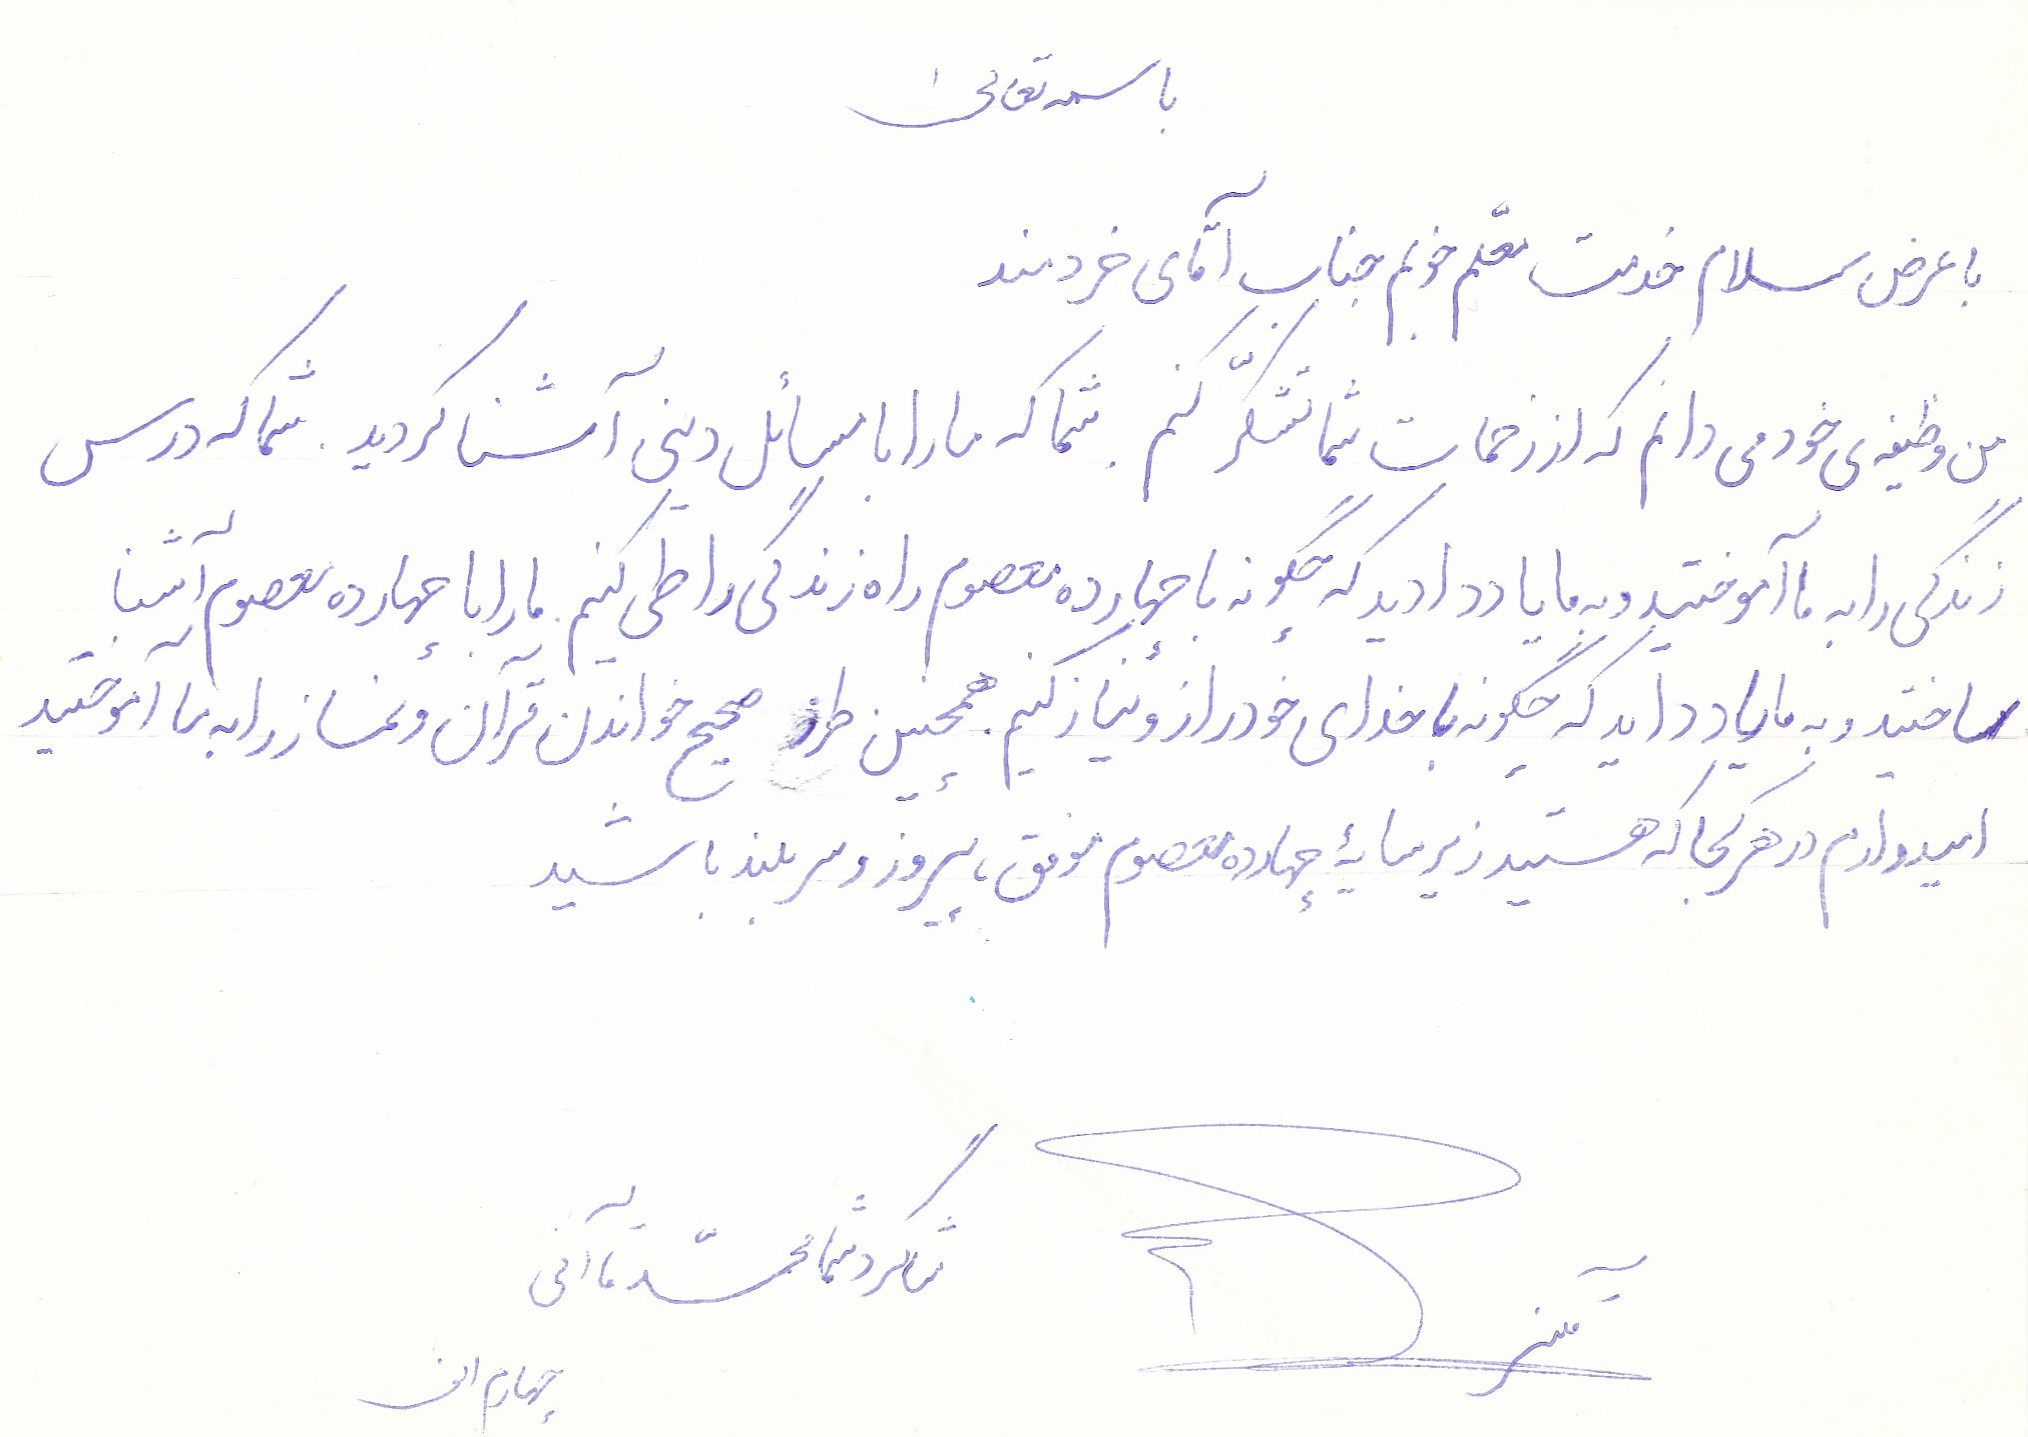 باسمه تعالی
با عرض سلام خدمت معلّم خوبم جناب آقای خردمند
من وظیفه ی خود می دانم که از زحمات شما تشکّر کنم. شما که ما را با مسائل دینی آشنا کردید. شما که درس
زندگی را به ما آموختید و به ما یاد دادید که چگونه با چهارده معصوم راه زندگی را طی کنیم. ما را با چهارده معصوم آشنا
ساختید و به ما یاد داید که چگونه با خدای خود راز و نیاز کنیم. همچنین طرز صحیح خواندن قرآن و نماز را به ما آموختید
امیدوارم در هر کجا که هستید زیر سایهٔ چهارده معصوم موفق، پیروز و سربلند باشید
شاگرد شما محمّد
چهارم الف